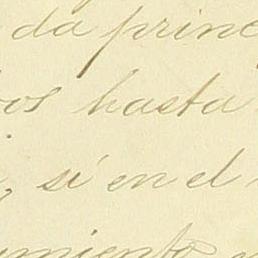 da prin
hasta
si en el
miento